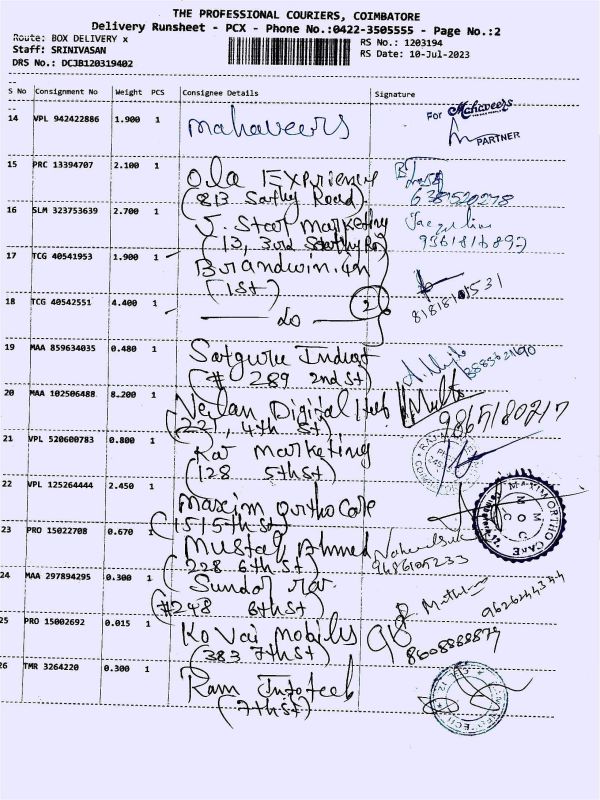 THE PROFESSIONAL COURIERS, COIMBATORE
Delivery Runsheet - PCX - Phone No.:0422-3505555 - Page No.:2
Route: BOX DELIVERY x
RS No.: 1203194
Staff: SRINIVASAN
RS Date: 10-Jul-2023
DRS No.: DCJB120319402
S No Consignment No Weight PCS Consignee Details Signature
14 VPL 942422886 1.900 1 mahaveers
For Mahaveers
PARTNER
15 PRC 13394707 2.100 1 Ola Exprience
(813 Sathy Road)
16 SLM 323753639 2.700 1 J. Star marketing
(13, 3rd Sathy Ro)
9361816892
17 TCG 40541953 1.900 1 Brandwin.
(1St)
18 TCG 40542551 4.400 1 do 2
8181811531
19 MAA 859634035 0.480 1 Satguru Indust
(# 289 2nd St)
20 MAA 102506488 8.200 1 Veilan Digital
(221, 4th St)
9865180217
21 VPL 520600783 0.800 1 Raj marketing
(128 5th St)
22 VPL 125264444 2.450 1 maxim ortho care
(15 15th St)
MAXIM ORTHO CARE
23 PRO 15022708 0.670 1 Mustaf Ahmed
(228 6th St)
9486105233
24 MAA 297894295 0.300 1 Sundar raj
(#248 6th St)
25 PRO 15002692 0.015 1 Kovai mobiles
(383 7th St)
8608868879
26 TMR 3264220 0.300 1 Ram Infotech
(7th St)